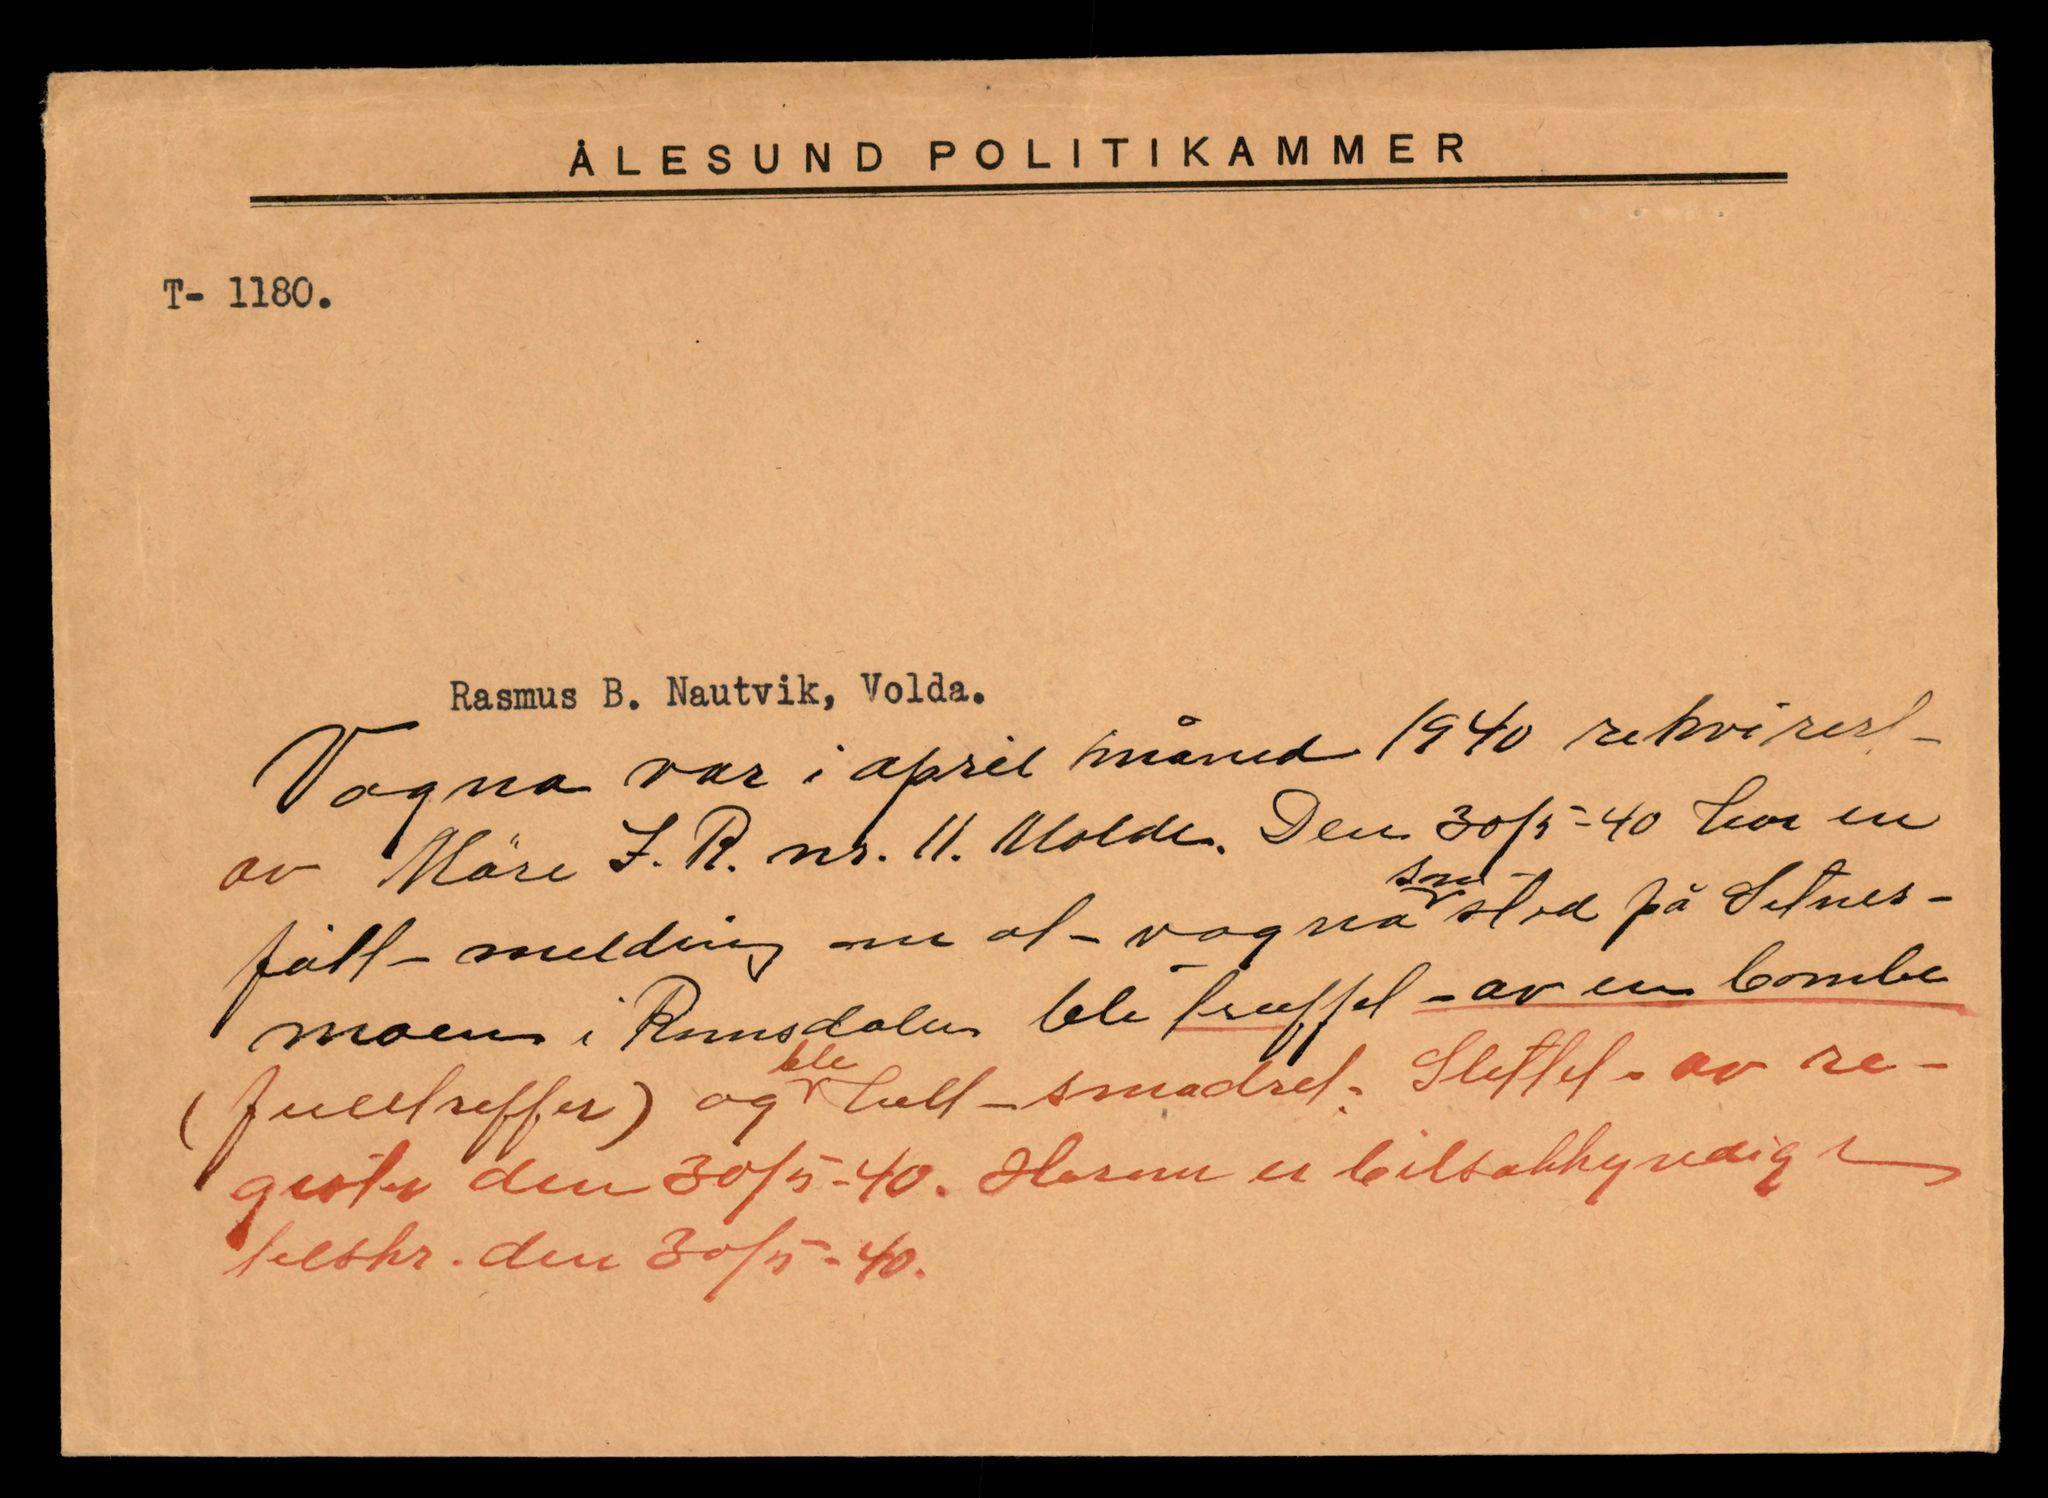 ÅLESUND POLITIKAMMER
T- 1180.
Rasmus B. Nautvik, Volda.
Vogna var i april måned 1940 rekvirert
av Möre I. R. nr. 11. Molde. Den 30/5-40 har en
fått melding om at vogna som stod på Setnes-
moen i Romsdalen ble truffet av en bombe
(fulltreffer) og ble helt smadret. Slettet av re-
gister den 30/5-40. Herom er bilsakkyndig
tilskr. den 30/5-40.